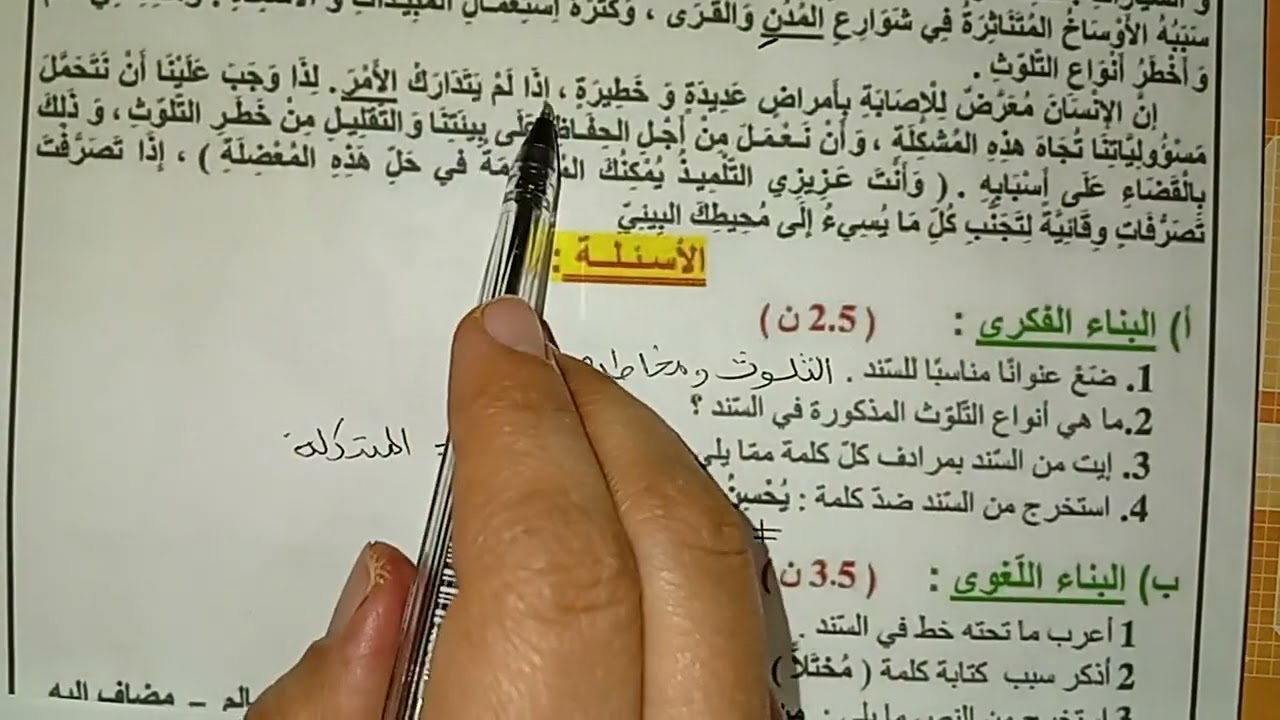 سَبَبُهُ الأَوْسَاخُ المُتَنَاثِرَةُ فِي شَوَارِعِ المُدُنِ وَالقُرَى ، وَكَثْرَةُ اِسْتِعْمَالِ المُبِيدَاتِ وَ
وَ أَخْطَرُ أَنْوَاعِ التَّلَوُّثِ .
إِنَّ الإِنْسَانَ مُعَرَّضٌ لِلْإِصَابَةِ بِأَمراضٍ عَدِيدَةٍ وَ خَطِيرَةٍ ، إِذَا لَمْ يَتَدَارَكْ الأَمْرَ . لِذَا وَجَبَ عَلَيْنَا أَنْ نَتَحَمَّلَ
مَسْؤُولِيَّاتِنَا تُجَاهَ هَذِهِ المُشكِلَةِ ، وَأَنْ نَعْمَلَ مِنْ أَجْلِ الحِفَاظِ عَلَى بِيئَتِنَا وَالتَّقْلِيلِ مِنْ خَطَرِ التَّلَوُّثِ، وَ ذَلِكَ
بِالْقَضَاءِ عَلَى أَسْبَابِهِ . ( وَأَنْتَ عَزِيزِي التِّلْمِيذُ يُمْكِنُكَ فِي حَلِّ هَذِهِ المُعْضِلَةِ ) ، إِذَا تَصَرَّفْتَ
تَصَرُّفَاتٍ وِقَائِيَّةً لِتَجَنُّبِ كُلِّ مَا يُسِيءُ إِلَى مُحِيطِكَ البِيئِيِّ
الأسئلة :
أ) البناء الفكرى : ( 2.5 ن )
1. ضَعْ عنوانًا مناسبًا للسّند . التلوث و
2.ما هي أنواع التّلوّث المذكورة في السّند ؟
3. إيت من السّند بمرادف كلّ كلمة ممّا يلي = المشكلة
4. استخرج من السّند ضدّ كلمة : يُحْسِنُ
≠
ب) البناء اللّغوى : ( 3.5 ن )
1 أعرب ما تحته خط في السّند .
2 أذكر سبب كتابة كلمة ( مُخْتَلاًّ )
3 استخرج من النص ما يلي : – مضاف إليه